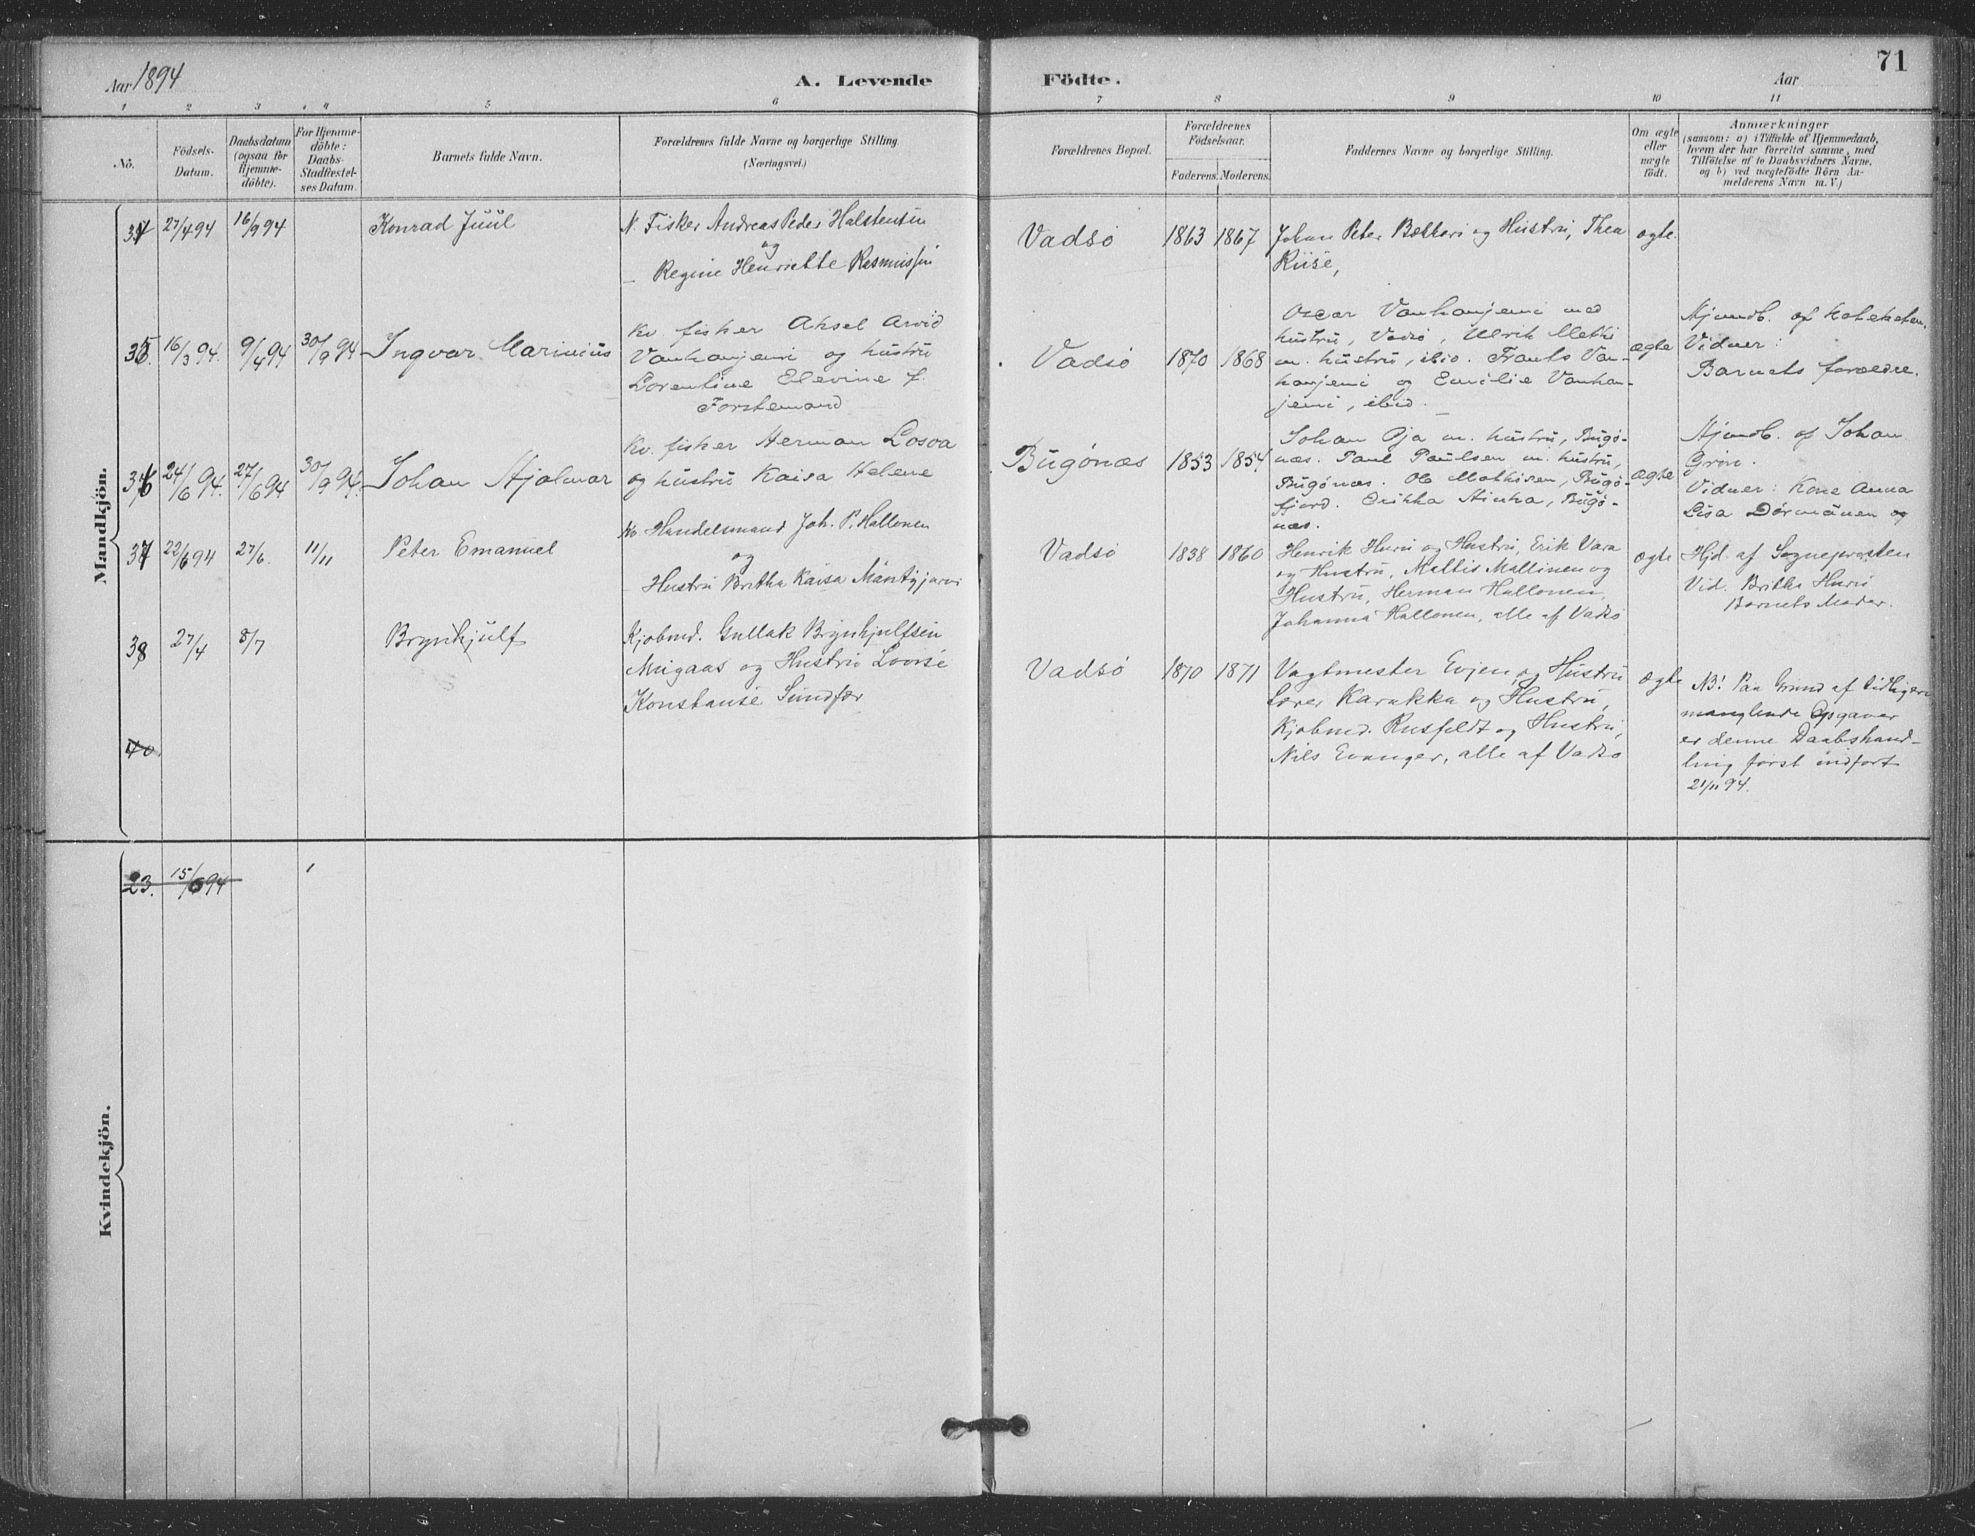 71
Aar 1894
A. Levende
Födte.
Aar
1 2 3 4 5 6 7 8 9 10 11
No.
Födsels-
Datum.
Daabsdatum
(ogsaa for
Hjemme-
döbte).
For Hjemme-
döbte:
Daabs-
Stadfæstel-
ses Datum.
Barnets fulde Navn.
Forældrenes fulde Navne og borgerlige Stilling
(Næringsvei.)
Forældrenes Bopæl.
Forældrenes
Födselsaar.
Faderens. Moderens.
Faddernes Navne og borgerlige Stilling.
Om ægte
eller
uægte
födt.
Anmærkninger
(saasom: a) i Tilfælde af Hjemmedaab,
hvem der har forrettet samme, med
Tilföielse af to Daabsvidners Navne,
og b) ved uægtefödte Börn An-
melderens Navn m. V.)
Mandkjön.
34 27/4 94 16/9 94 Konrad Juul
N. Fisker Andreas Peder Halstensen
og
Regine Henriette Rasmussen
Vadsö 1863 1867
Johan Peter Bekkari og Hustru, Thea
Riise,
ægte
35. 16/3 94. 9/4 94 30/9 94 Ingvar Marinius
kv. fisker Aksel Arvid
Vanhanjemi og hustru
Lorentine Elevine f.
Forstemand
Vadsö 1870 1868
Oscar Vanhanjemi med
hustru, Vadsö, Ulrik Mathi
m. hustru, ibid. Frants Van-
hanjemi og Emilie Vanhan-
jemi, ibid.
ægte
Hjemdb. af kateketen.
Vidner:
Barnets forældre.
36 24/6 94. 27/6 94 30/9 94. Johan Hjalmar
kv. fisker Herman Losoa
og hustru Kaisa Helene
Bugönæs 1853 1854
Johan Oja m. hustru, Bugö-
næs. Paul Paulsen m. hustru,
Bugönæs. Ole Mathisen, Bugö-
fjord. Erikka Hinka, Bugö-
næs.
ægte
Hjemdb. af Johan
Grön.
Vidner: Kone Anna
Lisa Dörmänen og
37 22/6 94 27/6. 11/11 Peter Emanuel
kv. Handelsmand Joh. P. Hallonen
og
Hustru Britha Kaisa Mäntyjarvi
Vadsö 1838 1860
Henrik Huru og Hustru, Erik Vara
og Hustru, Mattis Mallinen og
Hustru, Herman Hallonen,
Johanna Hallonen, alle af Vadsö
ægte
Hjd. af Sognepræsten
Vid. Britha Huru
Barnets Moder.
38 27/4 8/7 Brynhjulf
Kjöbmd. Gullak Brynhjulfsen
Miigaas og Hustru Lovise
Konstanse Sundfær
Vadsö 1870 1871
Vagtmester Evjen og Hustru
Lærer Karakka og Hustru,
Kjöbmd. Rusfeldt og Hustru,
Nils Evanger, alle af Vadsö
ægte
NB! Paa Grund af tidligere
manglende Opgaver
er denne Daabshand-
ling först indfört
21/11 94.
40.
Kvindekjön.
23. 15/6 94